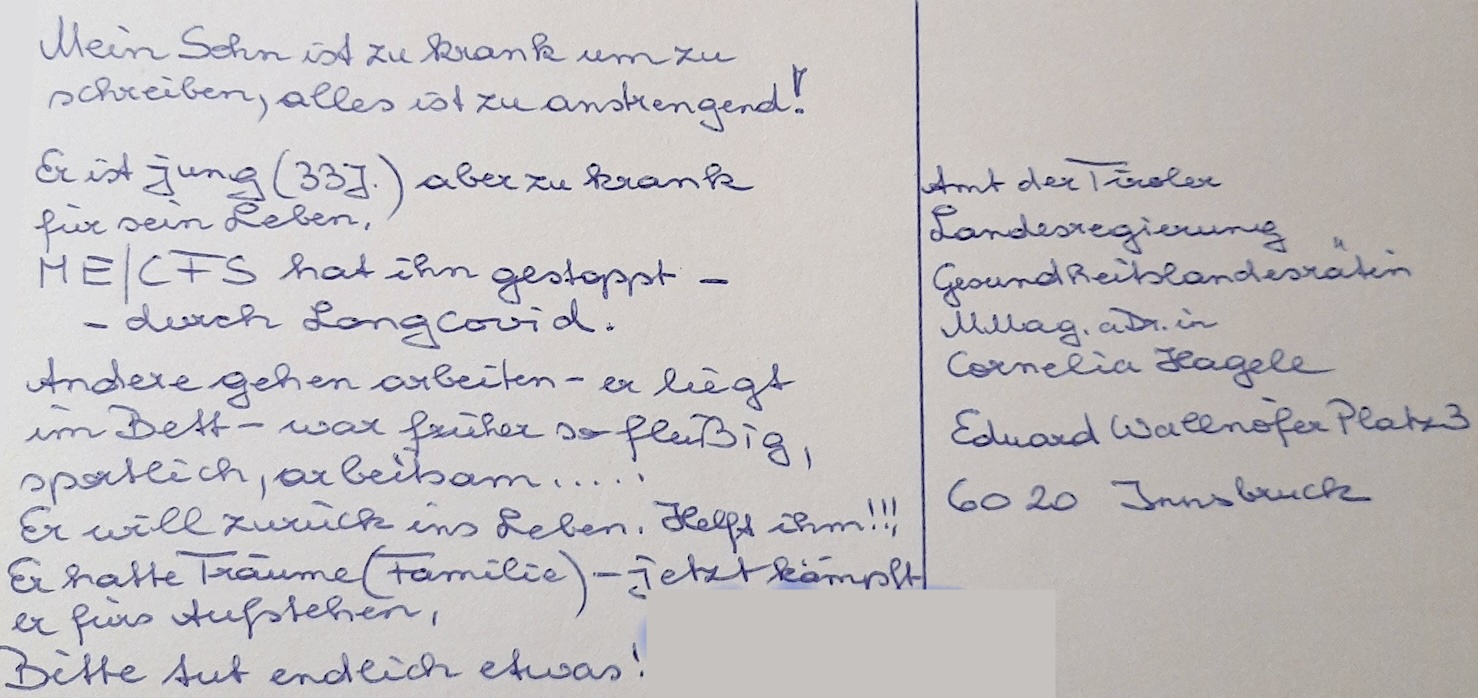 Mein Sohn ist zu krank um zu
schreiben, alles ist zu anstrengend!
Er ist jung (33J.) aber zu krank
für sein Leben.
ME/CFS hat ihn gestoppt -
- durch Longcovid.
Andere gehen arbeiten - er liegt
im Bett - war früher so fleißig,
sportlich, arbeitsam.....
Er will zurück ins Leben. Helft ihm!!!
Er hatte Träume (Familie) - jetzt kämpft
er fürs Aufstehen,
Bitte tut endlich etwas!
Amt der Tiroler
Landesregierung
Gesundheitslandesrätin
MMag.aDr.in
Cornelia Hagele
Eduard Wallnöfer Platz 3
6020 Innsbruck